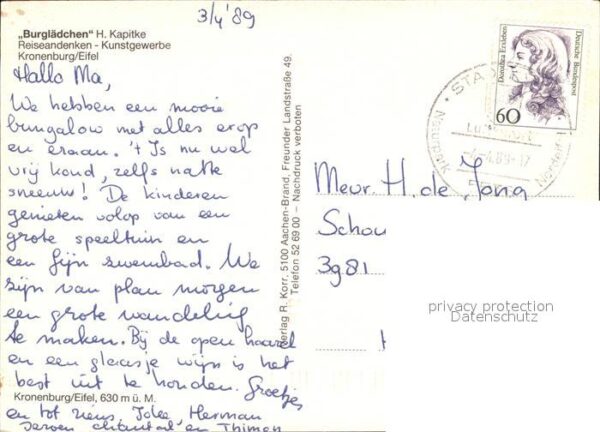 3/4 '89
„Burglädchen" H. Kapitke
Reiseandenken - Kunstgewerbe
Kronenburg/Eifel
Hallo Ma,
We hebben een mooie
bungalow met alles erop
en eraan. 't Is nu wel
vrij koud, zelfs natte
sneeuw! De kinderen
genieten volop van een
grote speeltuin en
een fijn zwembad. We
zijn van plan morgen
een grote wandeling
te maken. Bij de open haard
en een glaasje wijn is het
best uit te houden. Groetjes
Kronenburg/Eifel, 630 m ü. M.
en tot ziens. Herman
Jeroen Chantal en
Verlag R. Korr. 5100 Aachen-Brand, Freunder Landstraße 49,
Telefon 52 69 00 - Nachdruck verboten
Dorothea Erxleben
Deutsche Bundespost
60
Mevr. H. de Jong
Schou
3981
privacy protection
Datenschutz